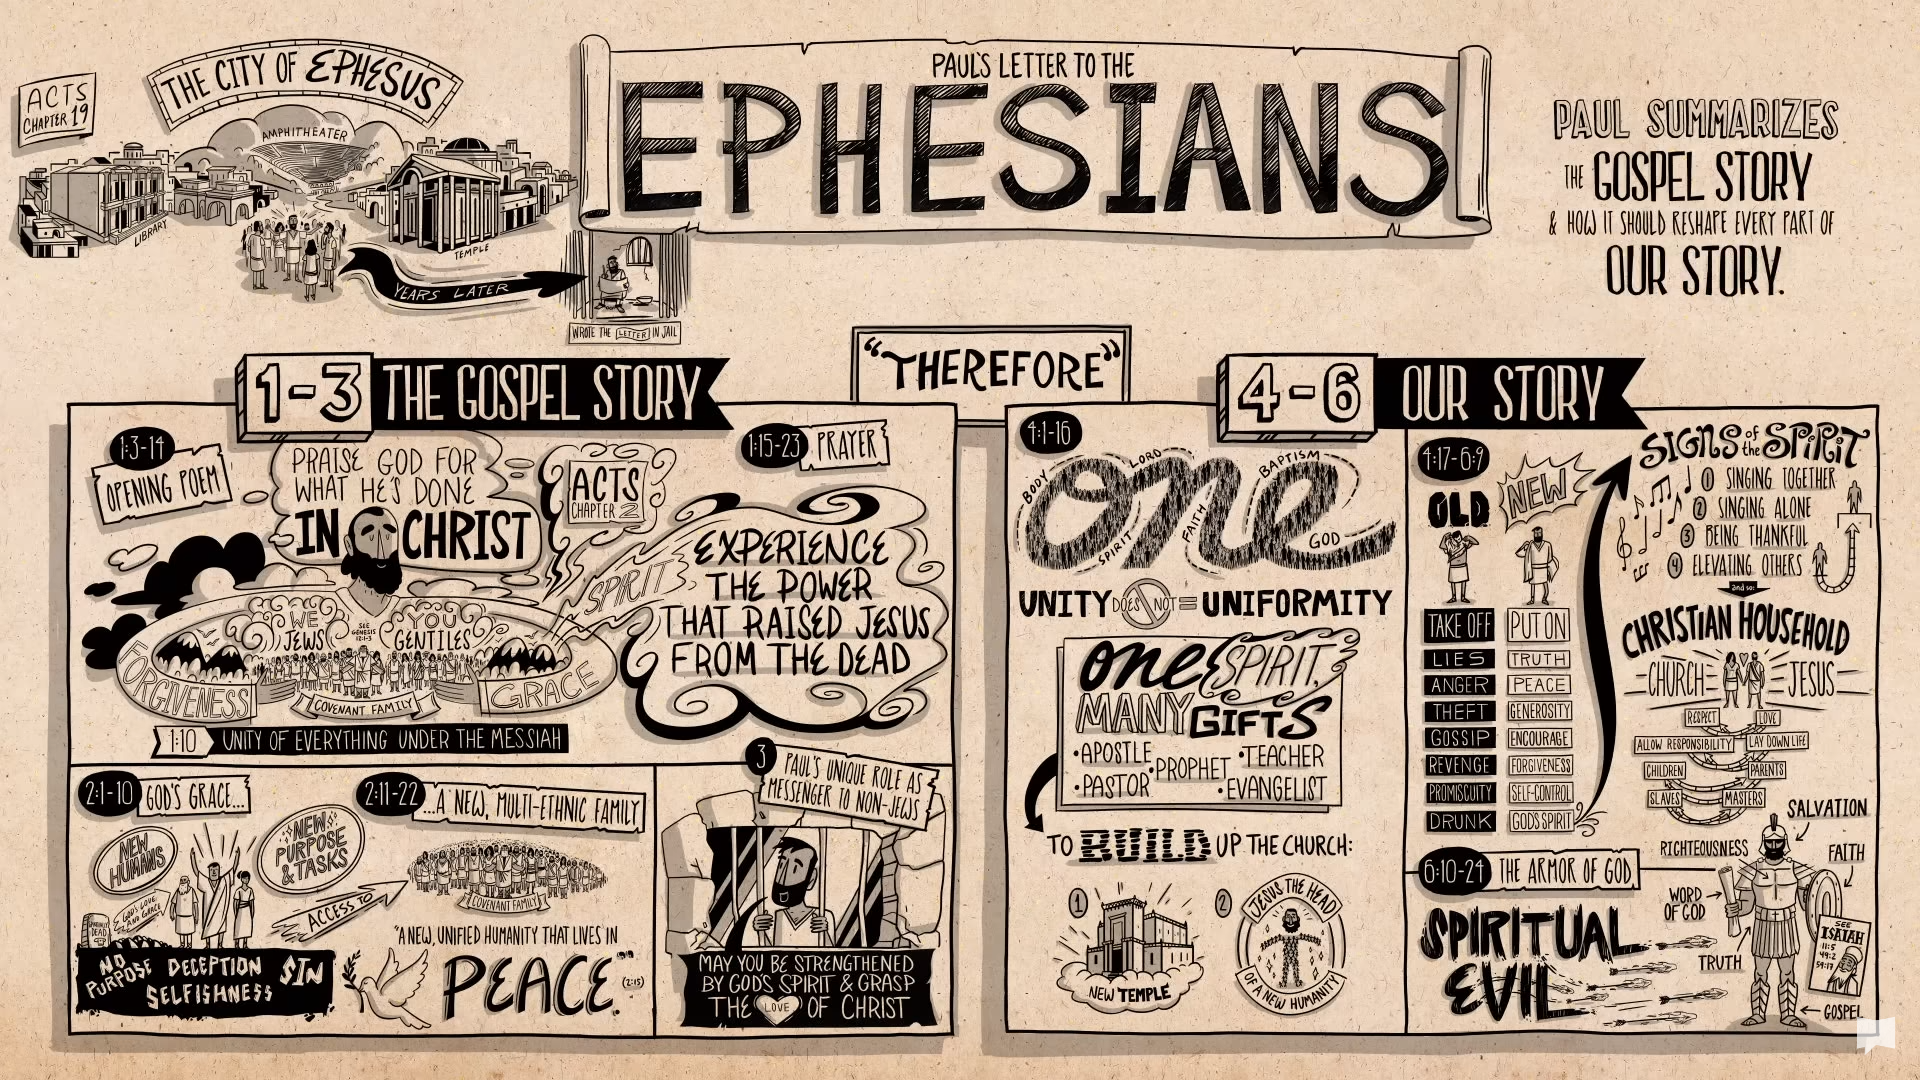 ACTS
CHAPTER 19
THE CITY OF EPHESUS
AMPHITHEATER
LIBRARY
TEMPLE
YEARS LATER
WROTE THE LETTER IN JAIL
PAUL'S LETTER TO THE
EPHESIANS
PAUL SUMMARIZES
THE GOSPEL STORY
& HOW IT SHOULD RESHAPE EVERY PART OF
OUR STORY.
1-3 THE GOSPEL STORY
1:3-14
OPENING POEM
PRAISE GOD FOR
WHAT HE'S DONE
IN CHRIST
ACTS
CHAPTER 2
1:15-23 PRAYER
SPIRIT
EXPERIENCE
THE POWER
THAT RAISED JESUS
FROM THE DEAD
WE
JEWS
SEE
GENESIS
12:1-3
YOU
GENTILES
FORGIVENESS
GRACE
COVENANT FAMILY
1:10 UNITY OF EVERYTHING UNDER THE MESSIAH
2:1-10 GOD'S GRACE...
NEW
HUMANS
NEW
PURPOSE
& TASKS
GOD'S LOVE
AND GRACE
SPIRITUALLY
DEAD
NO
PURPOSE
DECEPTION
SELFISHNESS
SIN
2:11-22 ...A NEW, MULTI-ETHNIC FAMILY
ACCESS TO
COVENANT FAMILY
"A NEW, UNIFIED HUMANITY THAT LIVES IN
PEACE." (2:15)
3
PAUL'S UNIQUE ROLE AS
MESSENGER TO NON-JEWS
MAY YOU BE STRENGTHENED
BY GOD'S SPIRIT & GRASP
THE LOVE OF CHRIST
"THEREFORE"
4-6 OUR STORY
4:1-16
one
BODY
LORD
BAPTISM
SPIRIT
FAITH
GOD
UNITY DOES NOT = UNIFORMITY
one SPIRIT,
MANY GIFTS
•APOSTLE
•PROPHET
•TEACHER
•PASTOR
•EVANGELIST
TO BUILD UP THE CHURCH:
1
NEW TEMPLE
2
JESUS THE HEAD
OF A NEW HUMANITY
4:17-6:9
OLD
NEW
TAKE OFF
PUT ON
LIES
TRUTH
ANGER
PEACE
THEFT
GENEROSITY
GOSSIP
ENCOURAGE
REVENGE
FORGIVENESS
PROMISCUITY
SELF-CONTROL
DRUNK
GOD'S SPIRIT
SIGNS of the SPIRIT
1 SINGING TOGETHER
2 SINGING ALONE
3 BEING THANKFUL
4 ELEVATING OTHERS
and so:
CHRISTIAN HOUSEHOLD
CHURCH
JESUS
RESPECT
LOVE
ALLOW RESPONSIBILITY
LAY DOWN LIFE
CHILDREN
PARENTS
SLAVES
MASTERS
6:10-24 THE ARMOR OF GOD
SPIRITUAL
EVIL
SALVATION
RIGHTEOUSNESS
FAITH
WORD
OF GOD
TRUTH
GOSPEL
SEE
ISAIAH
11:5
49:2
59:17